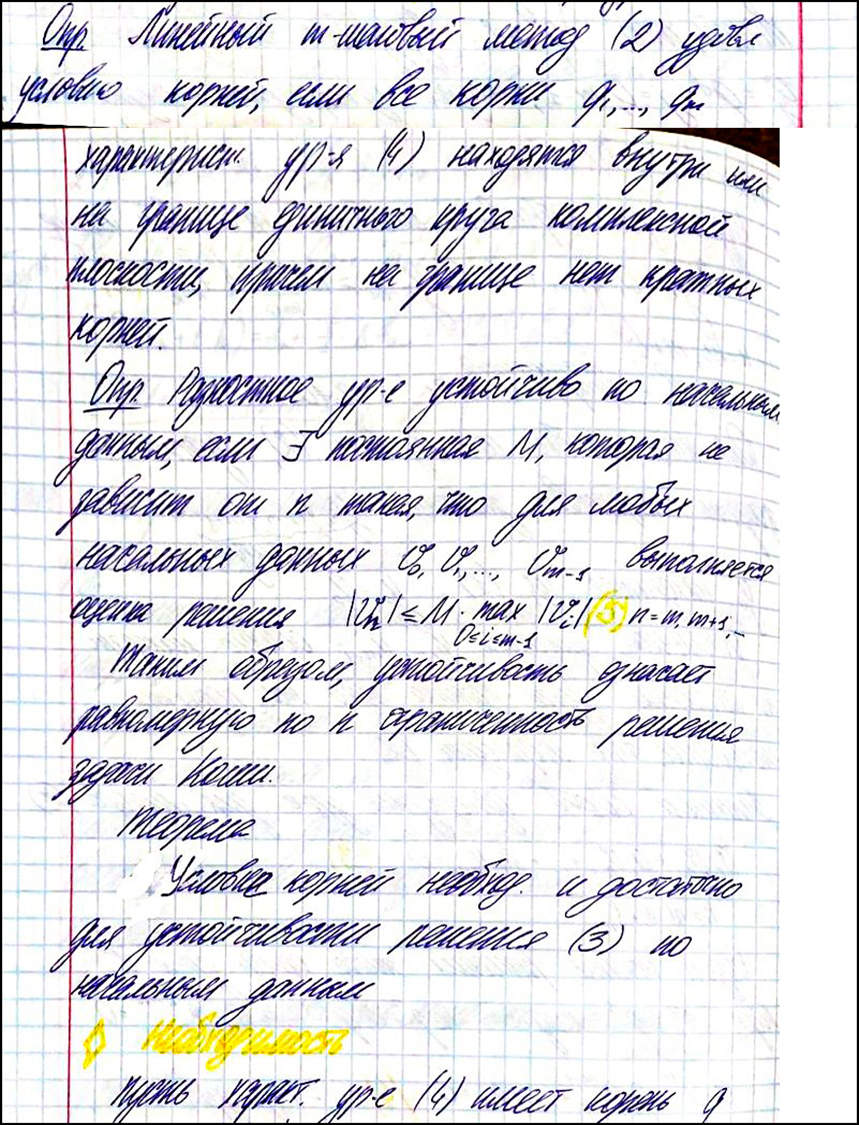 Опр. Линейный m-шаговый метод (2) удовл
условию корней, если все корни q₁,..., qₘ
характерист. ур-я (4) находятся внутри или
на границе единичного круга комплексной
плоскости, причем на границе нет кратных
корней.
Опр. Разностное ур-е устойчиво по начальным
данным, если ∃ постоянная M, которая не
зависит от n такая, что для любых
начальных данных v₀, v₁,..., vₘ₋₁ выполняется
оценка решения |vₙ| ≤ M · max |vᵢ| (5) n=m, m+1,...
0≤i≤m-1
Таким образом, устойчивость означает
равномерную по n ограниченность решения
задачи Коши.
Теорема
Условие корней необход. и достаточно
для устойчивости решения (3) по
начальным данным
Необходимость
Пусть характ. ур-е (4) имеет корень q